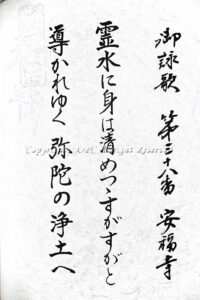 御詠歌 第三十八番 安福寺
霊水に身は清めつゝすがすがと
導かれゆく 弥陀の浄土へ